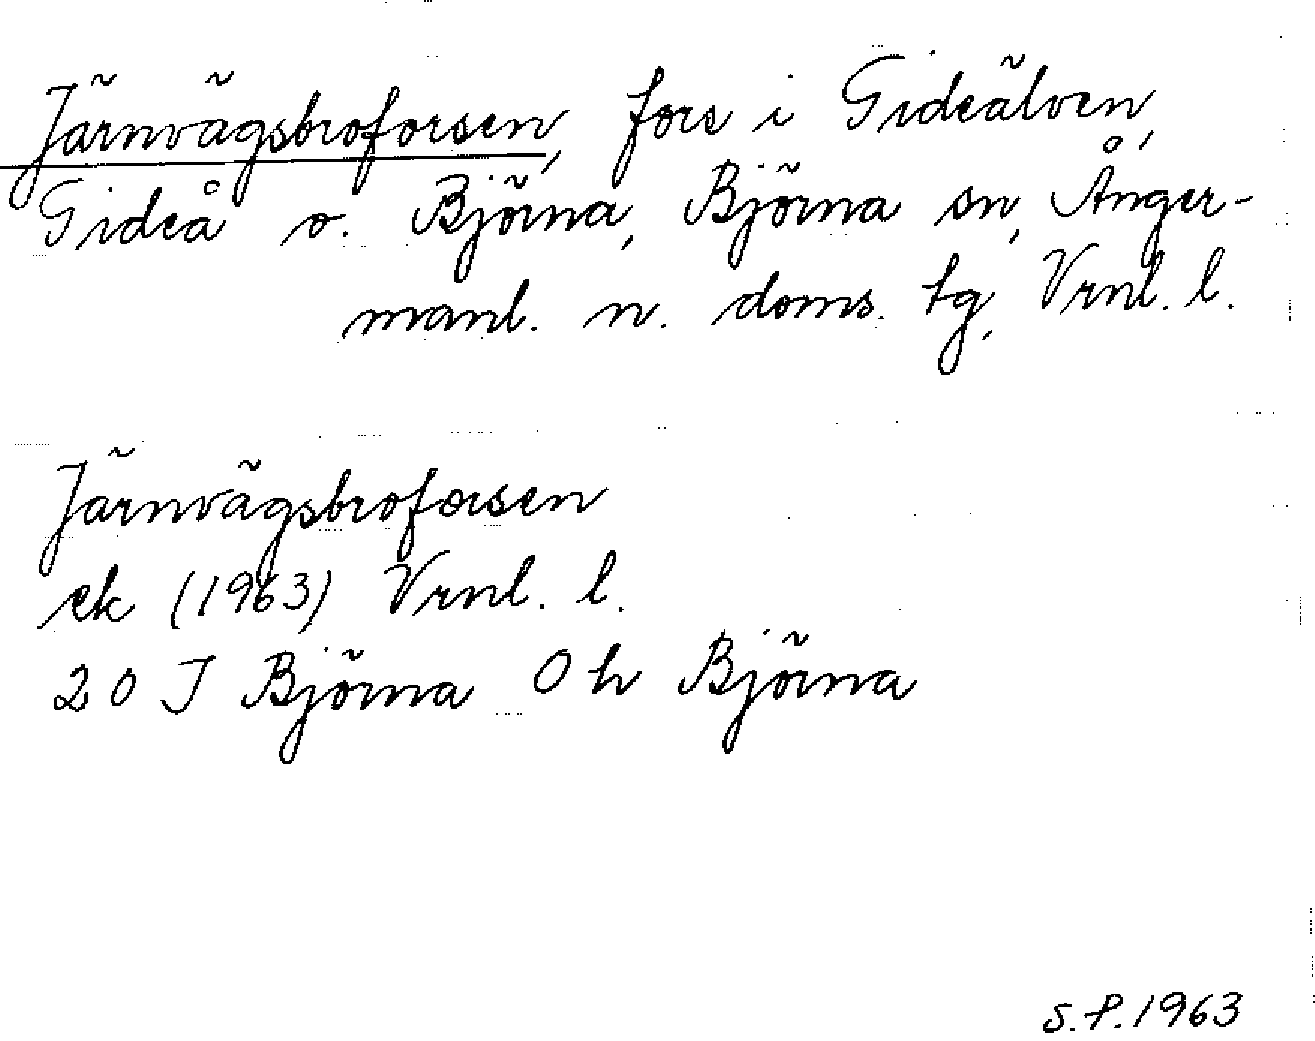 Järnvägsbroforsen, fors i Gideälven,
Gideå o. Björna, Björna sn, Ånger-
manl. n. doms. tg, Vrnl. l.
Järnvägsbroforsen
ek (1963) Vrnl. l.
20 J Björna 0 h Björna
S.P. 1963